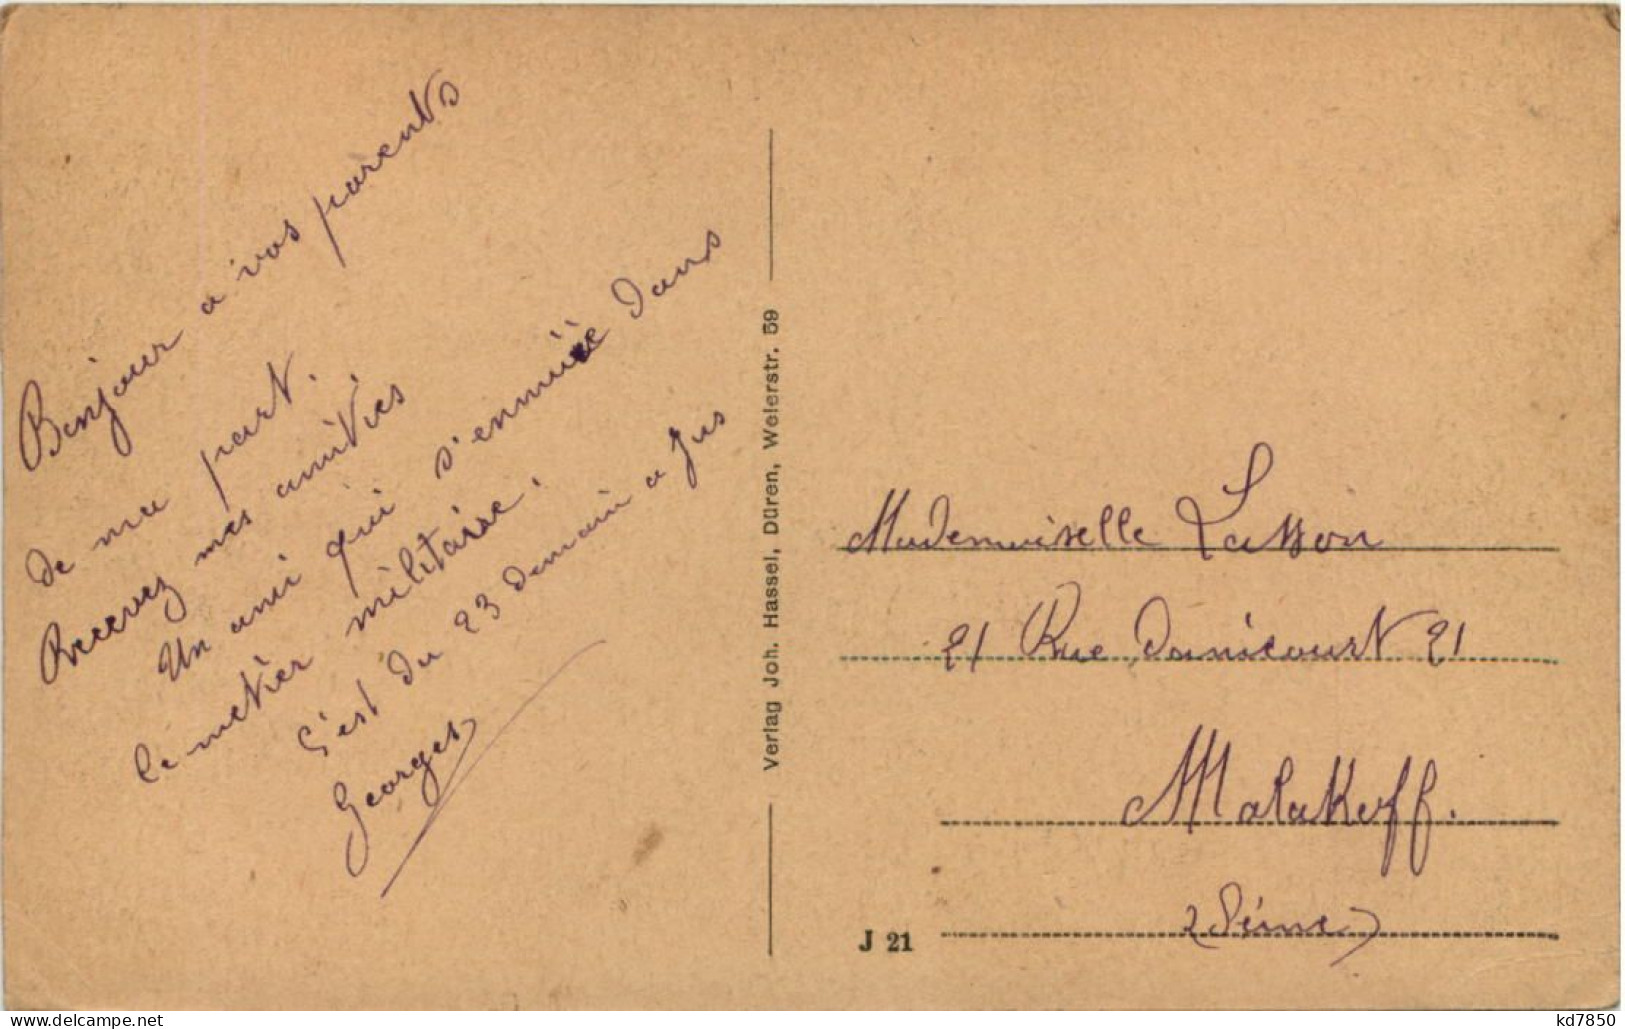 Bonjour a vos parents
de ma part.
Recevez mes amitiés
Un ami qui s'ennuie dans
le métier militaire.
C'est du 23 demain a jus
Georges
Verlag Joh. Hassel, Düren, Weierstr. 59
Mademoiselle Lasson
21 Rue 21
Malakoff.
(Seine)
J 21
kd7850